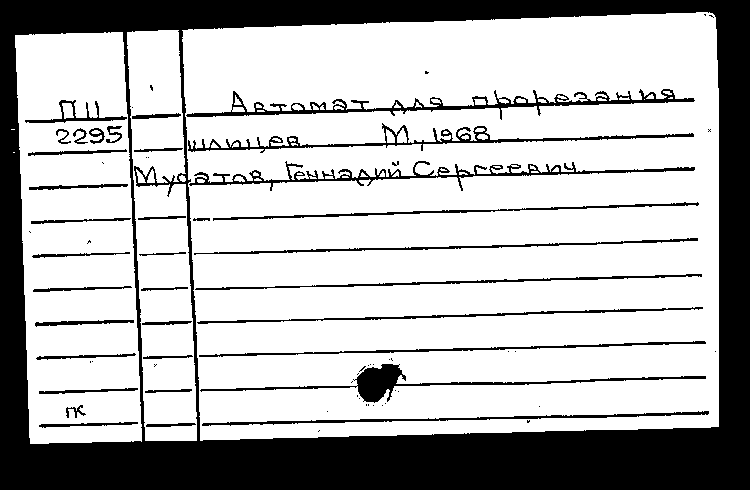 П11 Автомат для прорезания
2295 шлицев М., 1968
Мусатов, Геннадий Сергеевич
ПК